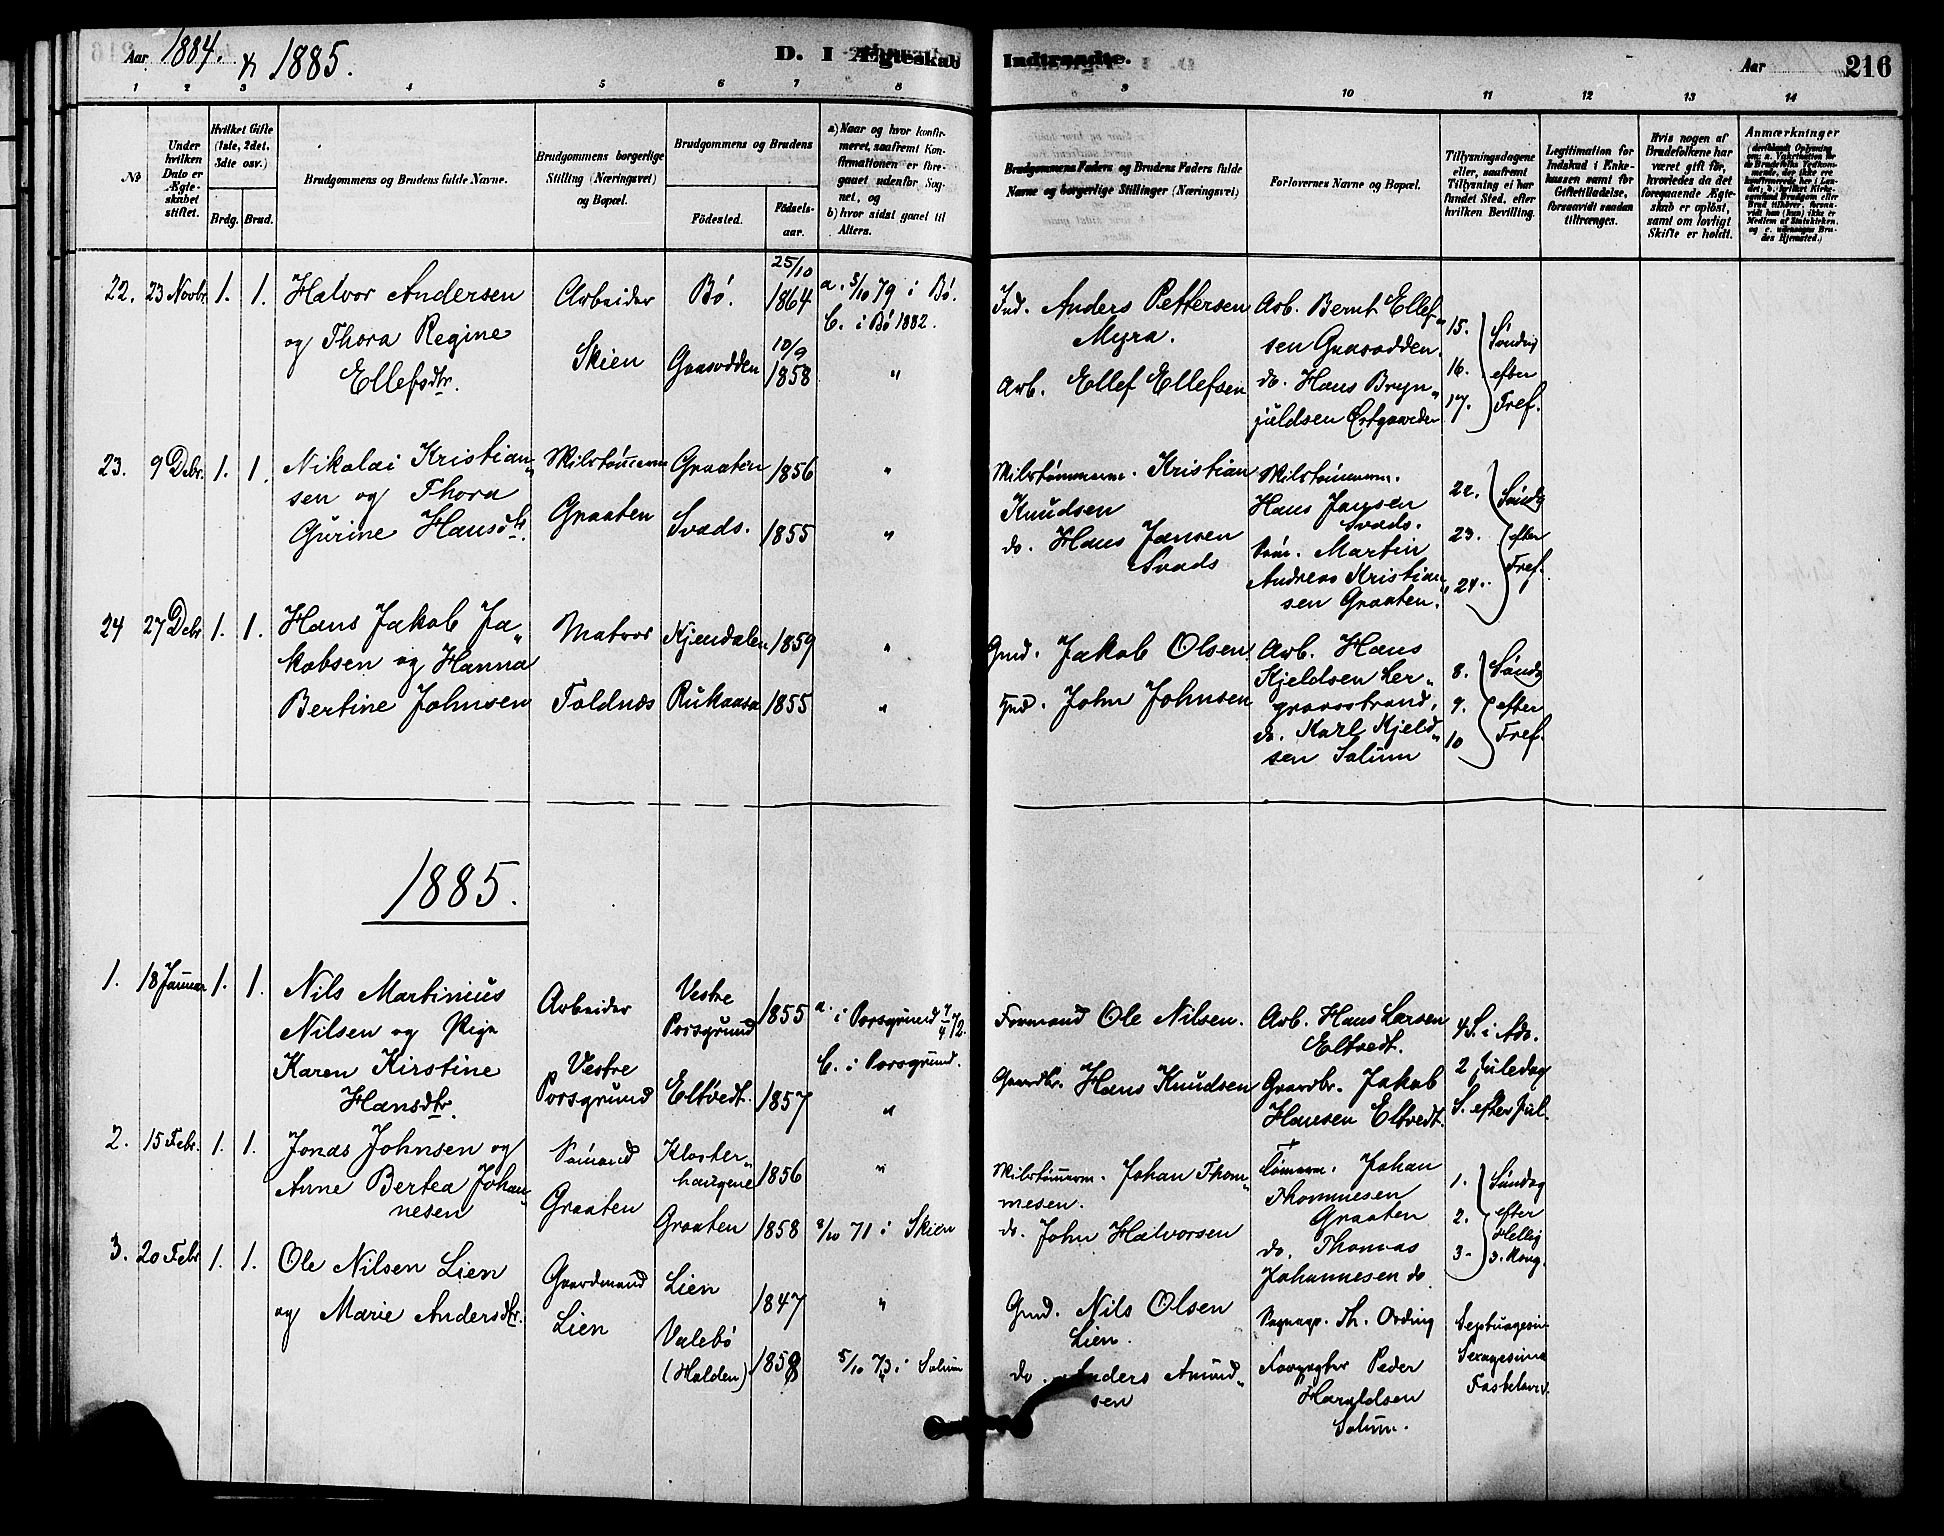 Aar 1884. & 1885.
D. I Ægteskab Indtraadte.
Aar 216
1 2 3 4 5 6 7 8 9 10 11 12 13 14
No
Under hvilken Dato er Ægteskabet stiftet.
Hvilket Gifte (1ste, 2det, 3die osv.)
Brdg. Brud.
Brudgommens og Brudens fulde Navne.
Brudgommens borgerlige Stilling (Næringsvei) og Bopæl.
Brudgommens og Brudens
Fødested.
Fødselsaar.
a) Naar og hvor konfirmeret, saafremt Konfirmationen er foregaaet udenfor Sognet, og
b) hvor sidst gaaet til Alters.
Brudgommens Faders og Brudens Faders fulde Navne og borgerlige Stillinger (Næringsvei)
Forlovernes Navne og Bopæl.
Tillysningsdagene eller, saafremt Tillysning ei har fundet Sted, efter hvilken Bevilling.
Legitimation for Indskud i Enkekassen samt for Giftetilladelse, forsaavidt saadan tiltrænges.
Hvis nogen af Brudefolkene har været gift før, hvorledes da det foregaaende Ægteskab er opløst, samt om lovligt Skifte er holdt.
Anmærkninger
22. 23 Novbr. 1. 1.
Halvor Andersen
og Thora Regine
Ellefsdtr.
Arbeider
Skien
Bø.
Graasodden
25/10
1864
10/9
1858
a. 5/10 79 i Bø.
b. i Bø 1882.
"
Ind. Anders Pettersen
Myra.
Arb. Ellef Ellefsen
Arb. Bernt Ellef-
sen Graasodden.
do. Hans Bryn-
juldsen Østgaarden
15.
16.
17.
Søndag
efter
Tref.
23. 9 Debr. 1. 1.
Nikolai Kristian-
sen og Thora
Gurine Hansdtr.
Milstømmerm.
Graaten
Graaten
Svads.
1856
1855
"
"
Milstømmerm. Kristian
Knudsen
do. Hans Jansen
Svads
Milstømmerm.
Hans Jansen
Svads.
Martin
Andreas Kristian-
sen Graaten.
22.
23.
24.
Søndg
efter
Tref.
24 27 Debr 1. 1.
Hans Jakob Ja-
kobsen og Hanna
Bertine Johnsen
Matros
Toldnæs
Kjendalen
Rukaasa
1859
1855
"
"
Gmd. Jakob Olsen
Gmd. John Johnsen
Arb. Hans
Kjeldsen Ler-
graosstrand.
do. Karl Kjeld-
sen Solum
8.
9.
10
Søndg
efter
Tref.
1885.
1. 18 Januar 1. 1.
Nils Martinius
Nilsen og Pige
Karen Kirstine
Hansdtr.
Arbeider
Vestre
Porsgrund
Vestre
Porsgrund
Eltvedt.
1855
1857
a. i Porsgrund 7/4 72.
b. i Porsgrund.
"
Formand Ole Nilsen.
Gaardbr. Hans Knudsen
Arb. Hans Larsen
Eltvedt.
Gaardbr. Jakob
Hansen Eltvedt.
4 S. i Adv.
2 Juledag
S. efter Jul.
2. 15 Febr. 1. 1.
Jonas Johnsen og
Anne Bertea Johan-
nesen
Sømand
Graaten
Kloster-
haugene
Graaten
1856
1858
"
8/10 71 i Skien
Milstømmerm. Johan Thom-
mesen.
do. John Halvorsen
Tømerm. Johan
Thommesen
Graaten
do. Thomas
Johannesen do
1.
2.
3.
Søndag
efter
Hellig
3. Kong.
3. 20 Febr 1. 1.
Ole Nilsen Lien
og Marie Andersdtr.
Gaardmand
Lien
Lien
Valebø
(Halden)
1847
1858
"
5/10 73 i Solum
Gmd. Nils Olsen
Lien.
do. Anders Amund-
sen
Sognep. Th. Ording
Forpagter Peder
Haraldsen
Solum.
Septuagesim
Sexagesima
Fastelavn.